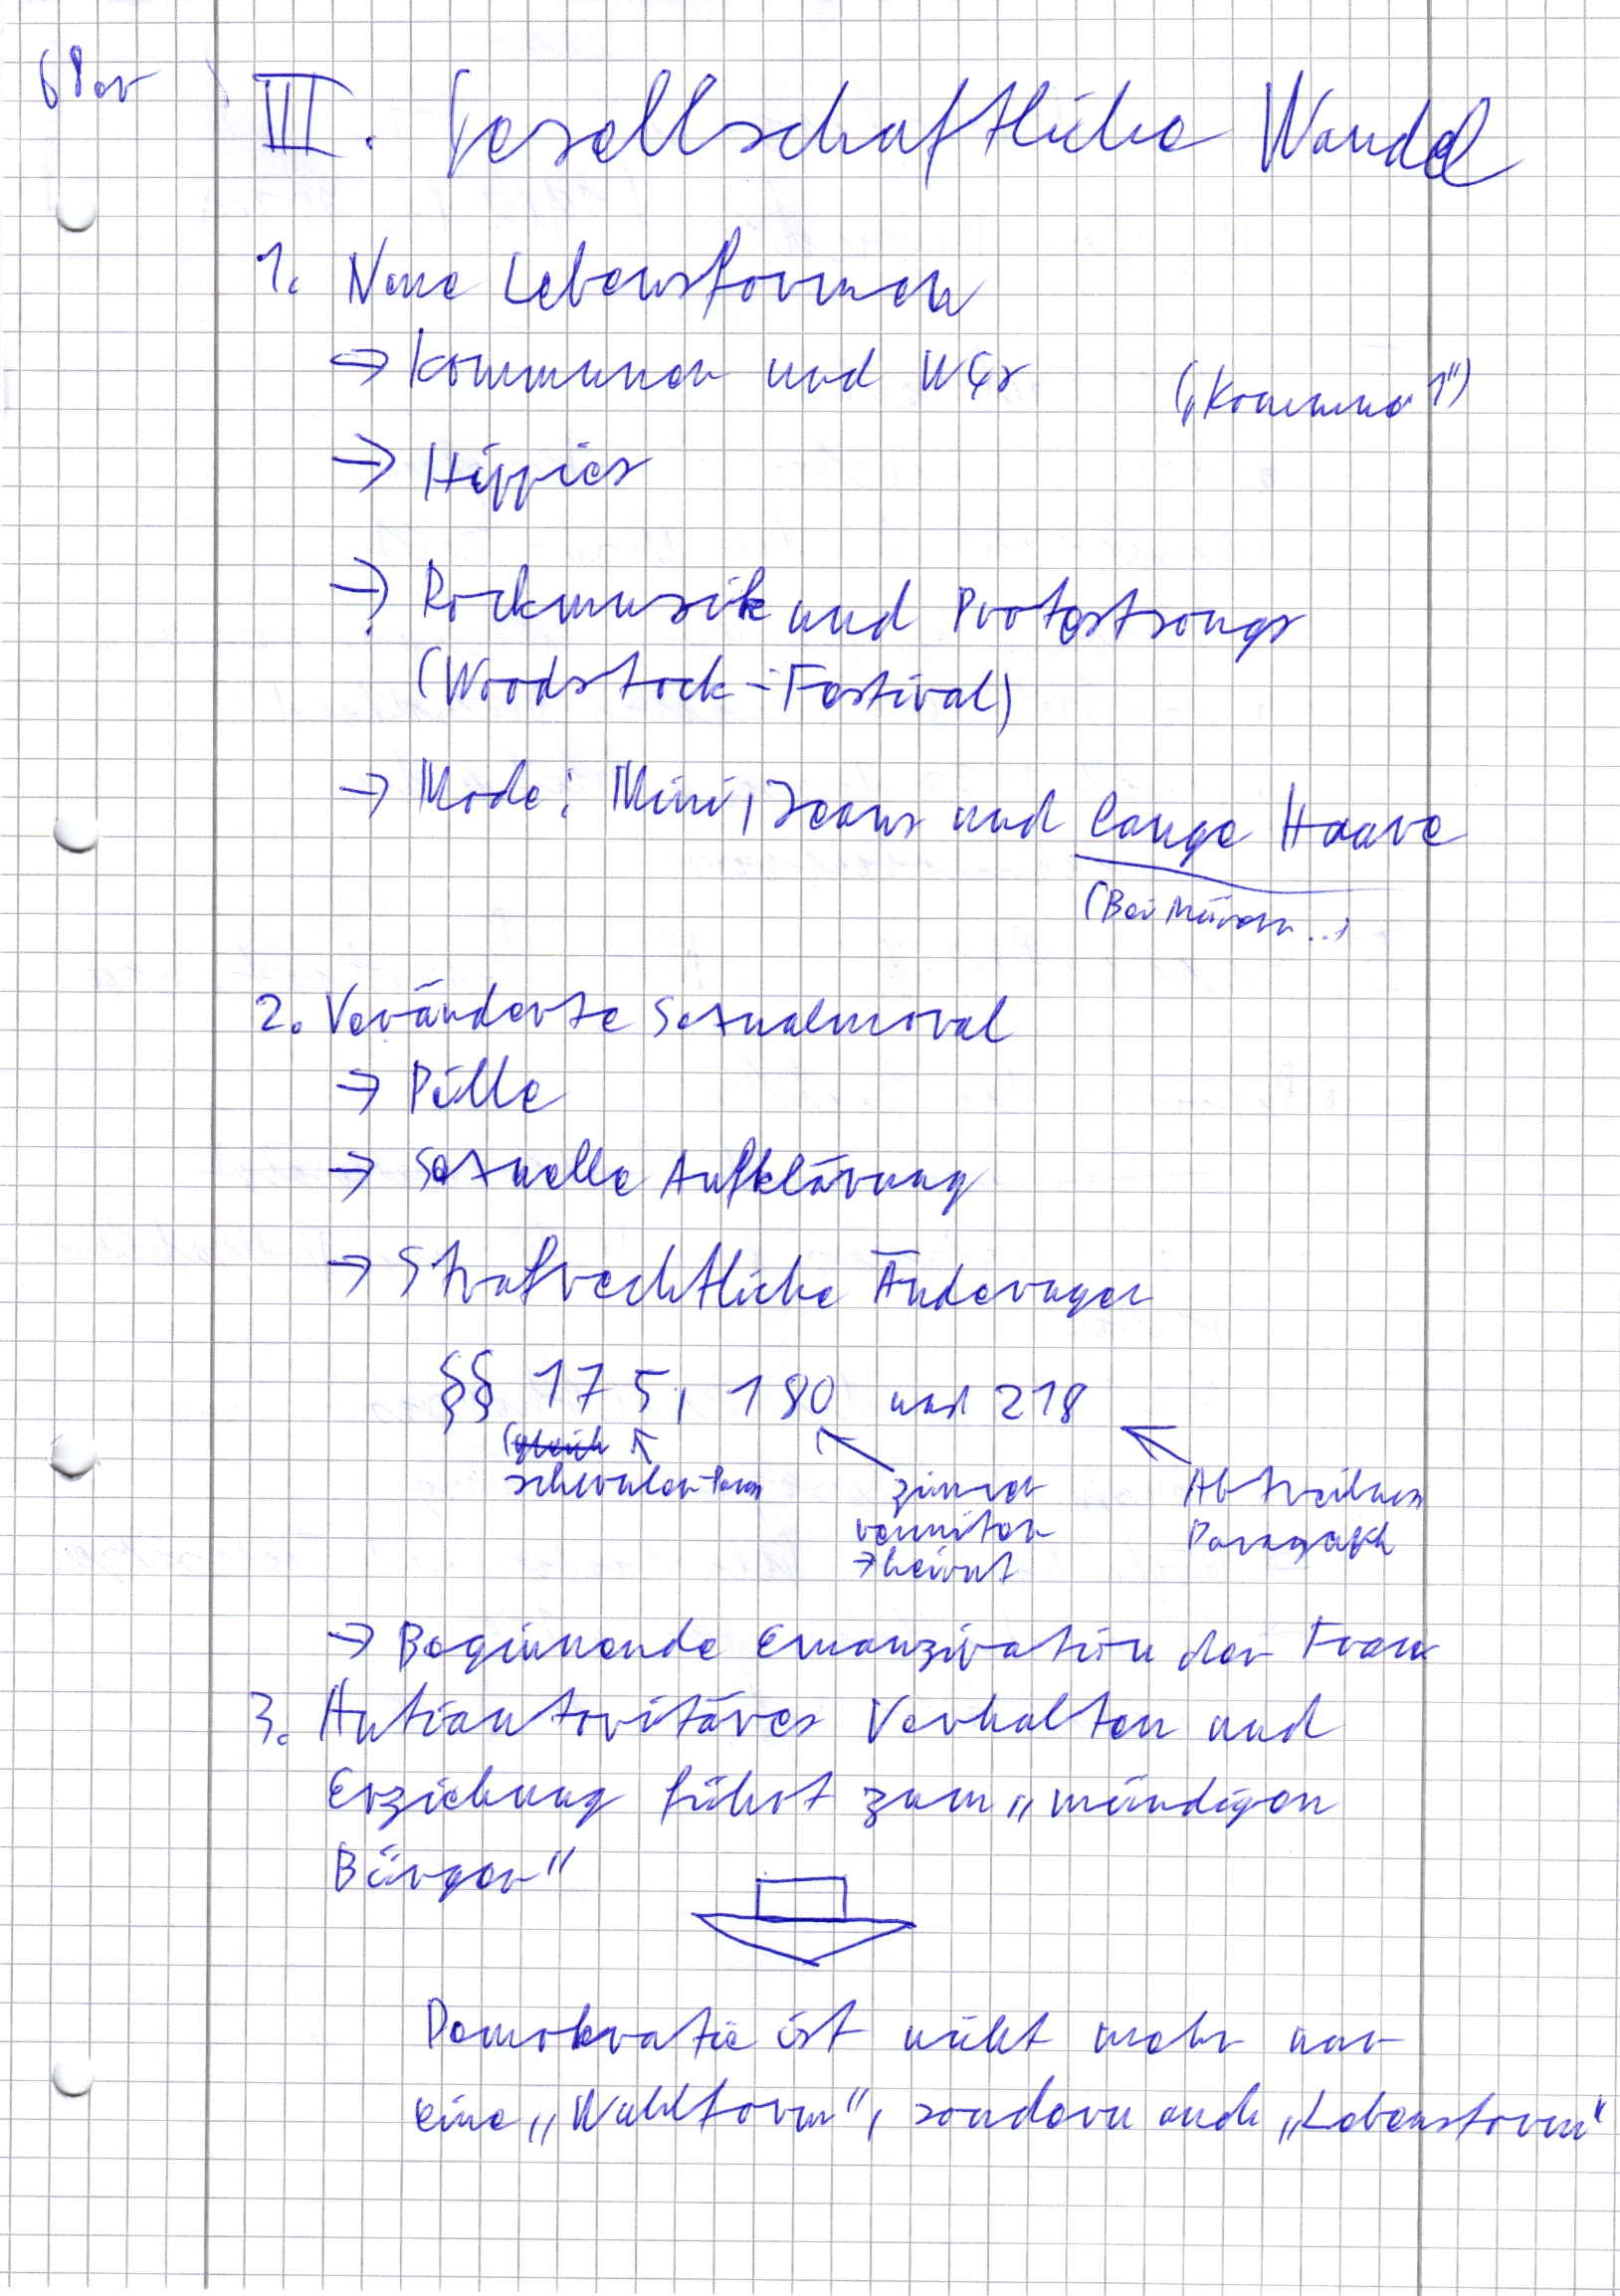 68er
III. Gesellschaftliche Wandel
1. Neue Lebensformen
→ Kommunen und WGs („Kommune 1“)
→ Hippies
→ Rockmusik und Protestsongs
(Woodstock-Festival)
→ Mode: Mini, Jeans und lange Haare
(Bei Männern...)
2. Veränderte Sexualmoral
→ Pille
→ Sexuelle Aufklärung
→ Strafrechtliche Änderungen
§§ 175, 180 und 218
zimmer
vermiten
→ heirat
Abtreibungs
Paragraph
→ Beginnende Emanzipation der Frau
3. Antiautoritäres Verhalten und
Erziehung führt zum „mündigen
Bürger“
Demokratie ist nicht mehr nur
eine „Wahlform“, sondern auch „Lebensform“